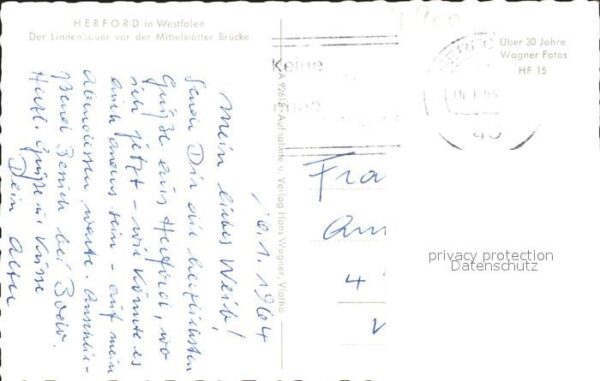 HERFORD in Westfalen
Der Linnenbauer vor der Mittelstätter Brücke
Über 30 Jahre
Wagner Fotos
HF 15
Keine
Aufnahme u. Verlag Hans Wagner, Vlotho
16.1.1964
Mein liebes Weib!
Sende Dir die herzlichsten
Grüße aus Herford, wo
ich jetzt - wie könnte es
auch anders sein - auf mein
Abendessen warte. Anschlie-
ßend Besuch bei
Herzl. Grüße u. Küsse
Dein
Fra
4
privacy protection
Datenschutz